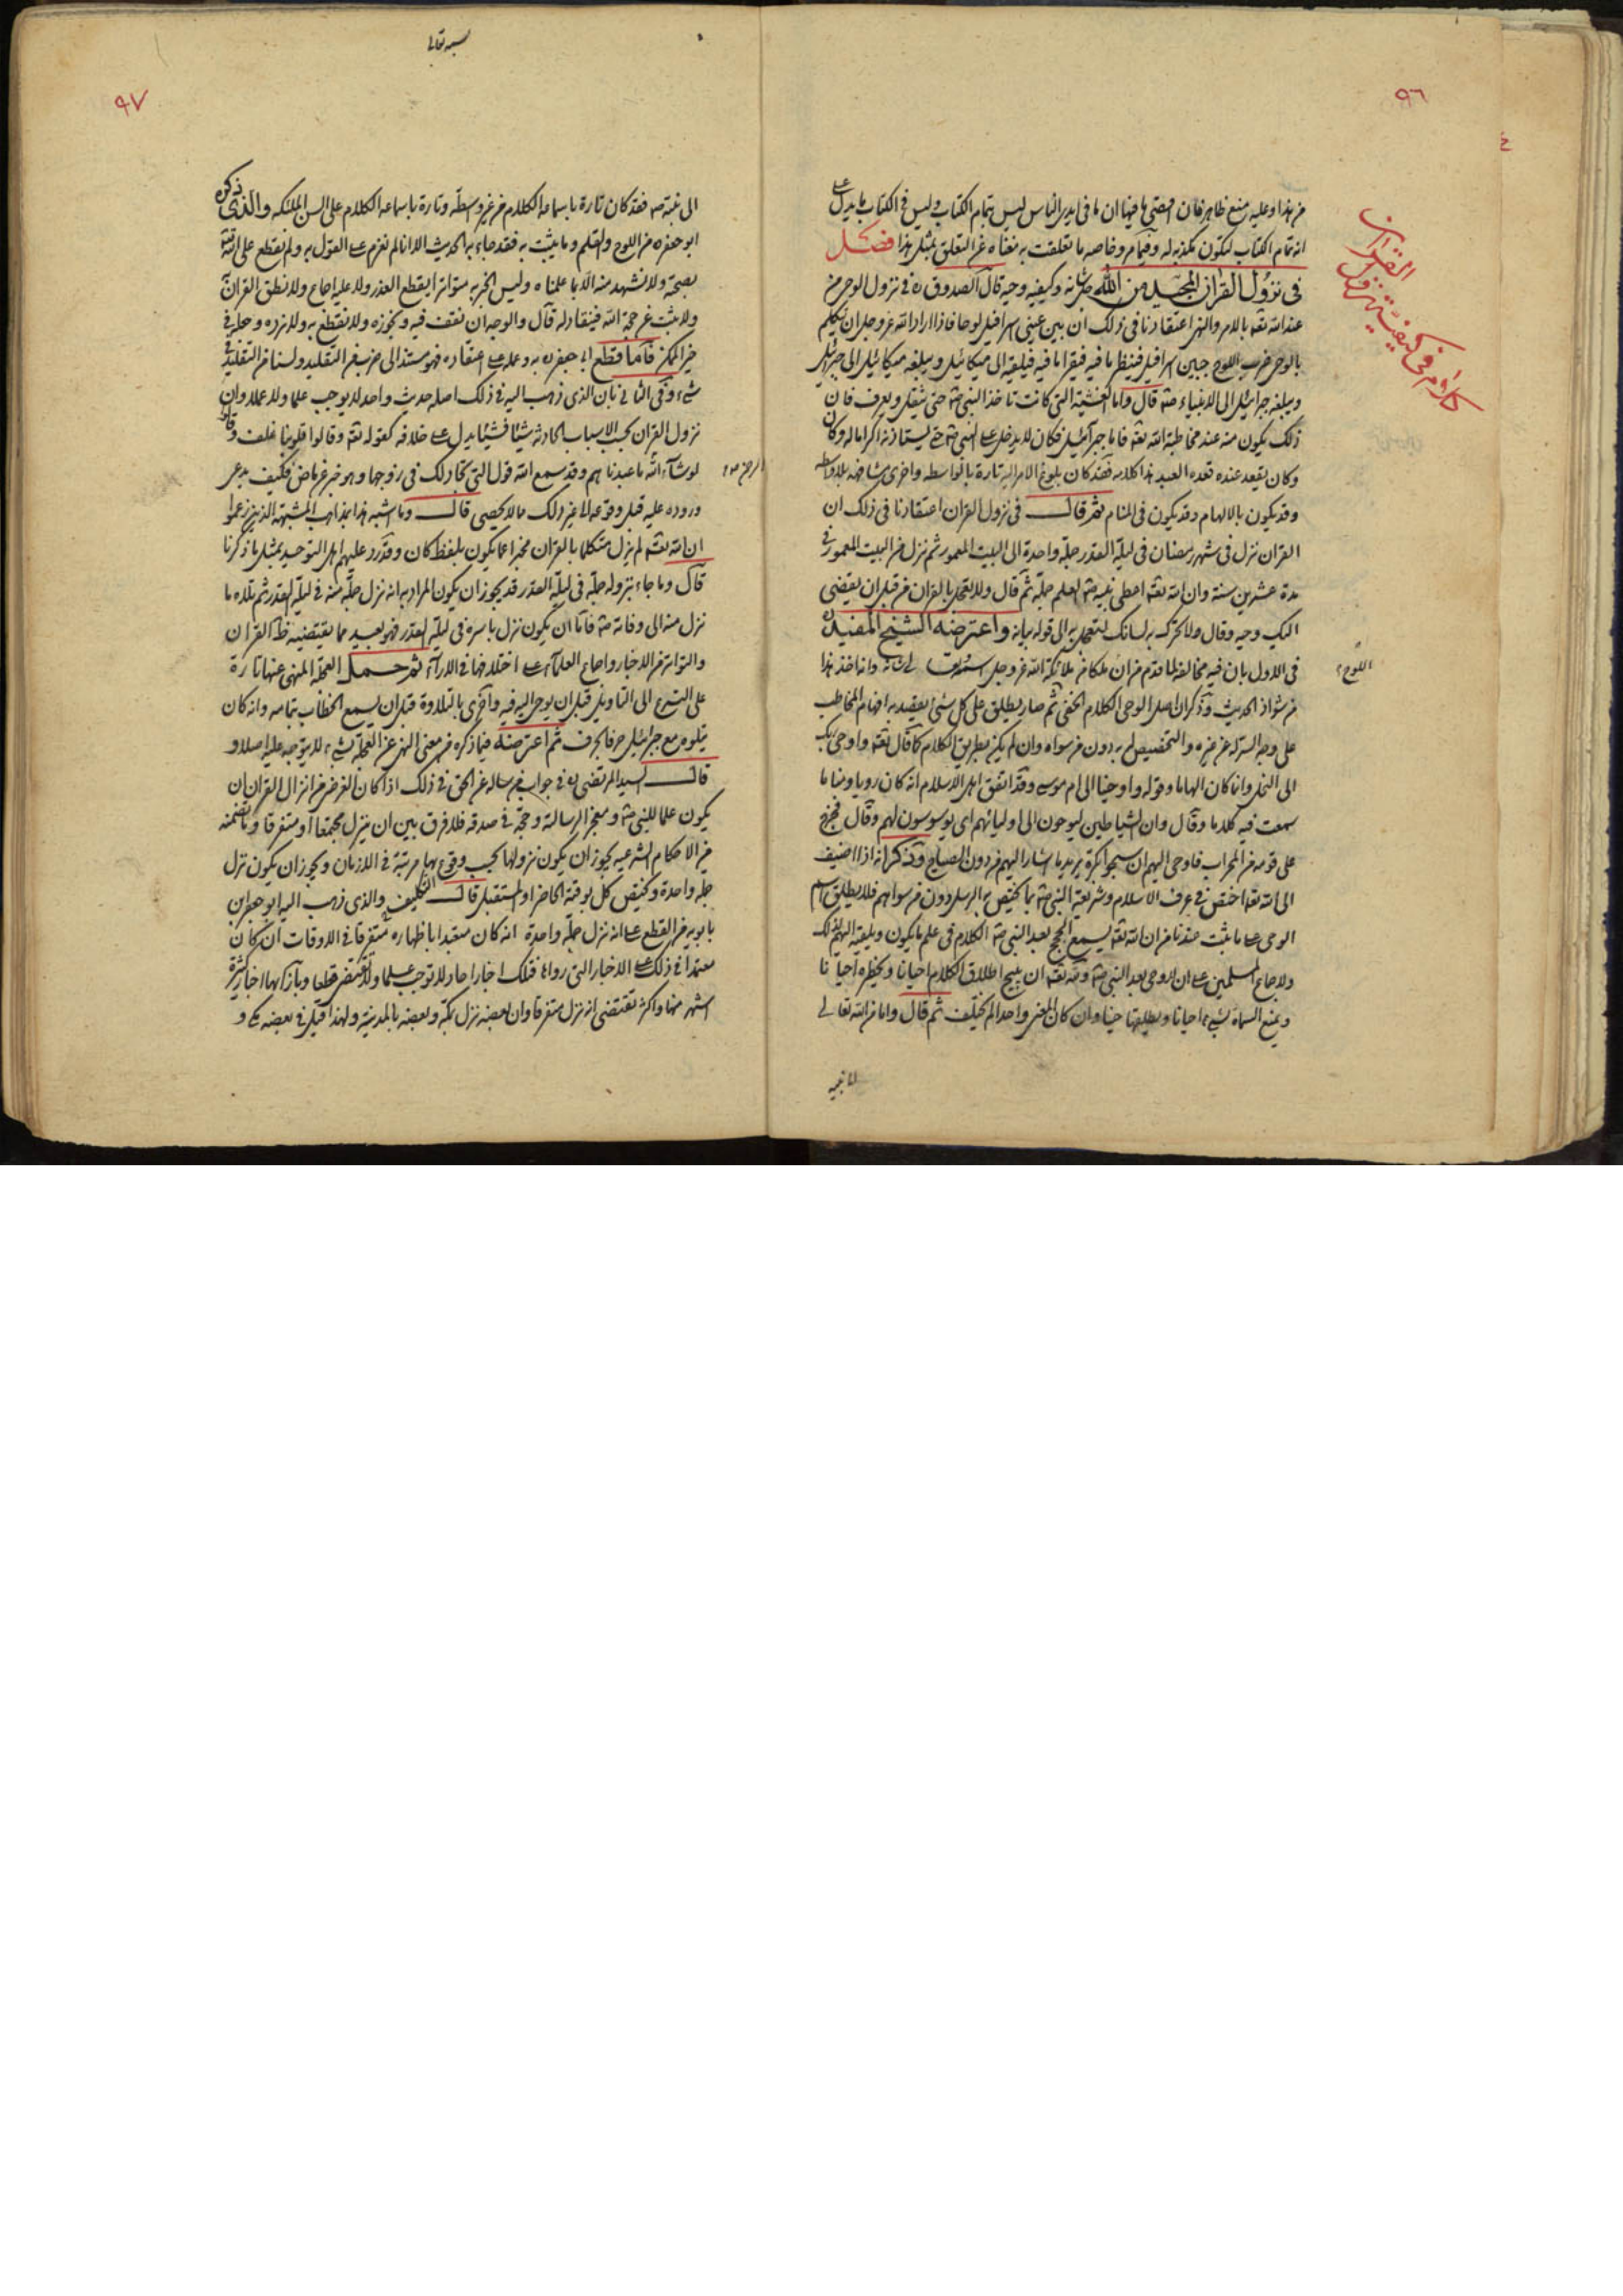 ٩٦
كلام في كيفية نزول القران
من هذا وعليه منع ظاهر فان المعتى ما في ايدي الناس ليس تمام الكتاب وليس في الكتاب ما يدل على
انه تمام الكتاب لتكون تكذيبا له وخاصه ما تعلقت به معناه عن التعلق بمثل هذا فصل
في نزول القران المجيد من الله جل شانه وكيفيه وحيه قال الصدوق ره في نزول الوحي من
عند الله تعه بالامر والنهي اعتقادنا في ذلك ان بين عيني اسرافيل لوحا فاذا اراد الله عز وجل ان يتكلم
بالوحي ضرب اللوح جبين اسرافيل فينظر ما فيه فيقرا ما فيه فيلقيه الى ميكائيل ويبلغه ميكائيل الى جبرائيل
ويبلغه جبرائيل الى الانبياء قال واما الغشية التي كانت تاخذ النبي صه حتى يثقل ويعرق فان
ذلك يكون منه عند مخاطبة الله تعه فاما جبرائيل فكان لا يدخل على النبي صه حتى يستاذنه اكراما له وكان
وكان يقعد عنده قعدة العبد هذا كلامه فقد كان بلوغ الامر اليه تارة بالواسطه واخرى مشافهه بلا واسطه
وقد يكون بالالهام وقد يكون في المنام ثم قال في نزول القران اعتقادنا في ذلك ان
القران نزل في شهر رمضان في ليلة القدر جملة واحدة الى البيت المعمور ثم نزل من البيت المعمور في
مدة عشرين سنة وان الله تعه اعطى نبيه صه العلم جملة ثم قال ولا تعجل بالقران من قبل ان يقضى
اليك وحيه وقال ولا تحرك به لسانك لتعجل به الى قوله بيانه واعترضه الشيخ المفيد ره
في الاول بان فيه مخالفة لما قدم من ان ملكا من ملائكة الله عز وجل وانه اخذ هذا
اللوح
من شواذ الحديث وذكر ان اصل الوحي الكلام الخفي ثم صار يطلق على كل شئ يقصد به افهام المخاطب
على وجه الستر له عن غيره والتخصيص له به دون من سواه وان لم يكن بطريق الكلام كما قال تعه واوحى ربك
الى النحل وانما كان الهاما وقوله واوحينا الى ام موسى وقد اتفق اهل الاسلام انه كان رؤيا ومناما
سمعت فيه كلاما وقال وان الشياطين ليوحون الى اوليائهم اي يوسوسون لهم وقال فخرج
على قومه من المحراب فاوحى اليهم ان سبحوا بكرة يريد ما اشار اليهم من دون افصاح وذكر انه اذا اضيف
الى الله تعه اختص في عرف الاسلام وشريعة النبي صه بما يختص به الرسل دون من سواهم فلا يطلق اسم
الوحي على ما يثبت عندنا من ان الله تعه يسمع الحجج بعد النبي صه الكلام في علم ما يكون ويلقيه اليهم لذلك
ولاجماع المسلمين على ان لا وحي بعد النبي صه ولله تعه ان يبيح اطلاق الكلام احيانا ويحظره احيانا
ويمنع السماة بشئ احيانا ويطلقها حينا وان كان المعنى واحدا لم يختلف ثم قال واما من الله تعالى
الى نبيه
٩٧
بسمه تعالى
الى نبيه صه فقد كان تارة باسماعه الكلام من غير واسطة وتارة باسماعه الكلام على السن الملائكه والذي ذكره
ابو جعفر ره من اللوح والقلم وما يثبت به فقد جاء به الحديث الا انا لم نعزم على القول به ولم نقطع على الله تعه
بصحته ولا نشهد منه الا بما علمناه وليس الخبر به متواترا يقطع العذر ولا عليه اجماع ولا نطق القران
ولا ثبت عن حجة الله فينقاد له قال والوجه ان نقف فيه ونجوزه ولا نقطع به ولا نرده ونجعله في
حيز الممكن فاما قطع ابي جعفر به وعمله على اعتقاده فهو مستند الى ضرب من التقليد ولسنا من التقليد في
شئ وفي الثاني بان الذي ذهب اليه في ذلك اصله حديث واحد لا يوجب علما ولا عملا وان
نزول القران بحسب الاسباب الحادثه شيئا فشيئا يدل على خلافه كقوله تعه وقالوا قلوبنا غلف وقالوا
لو شاء الله ما عبدناهم وقد سمع الله قول التي تجادلك في زوجها وهو خبر عن ماض فكيف يدعي
الرحمن
وروده عليه قبل وقوعه الى غير ذلك مما لا يحصى قال وما اشبه هذا بمذاهب المشبهه الذين زعموا
ان الله تعه لم يزل متكلما بالقران مخبرا عما يكون بلفظ كان وقد رد عليهم اهل التوحيد بمثل ما ذكرنا
قال وما جاء بنزوله جملة في ليلة القدر قد يجوز ان يكون المراد به انه نزل جملة منه في ليلة القدر ثم تلاه ما
نزل منه الى وفاته صه فاما ان يكون نزل باسره في ليلة القدر فهو بعيد مما يقتضيه ظاهر القران
والتواتر من الاخبار واجماع العلماء على اختلافها في الاراء ثم حمل العجلة المنهى عنها تارة
على التسرع الى التاويل قبل ان يوحى اليه فيه واخرى بالتلاوة قبل ان يسمع الخطاب بتمامه وانه كان
يتلوه مع جبرائيل حرفا بحرف ثم اعترضه فيما ذكره من معنى النهي عن العجلة بشئ لا يتوجه عليه اصلا و
قال السيد المرتضى ره في جواب من ساله عن الحق في ذلك اذا كان الغرض من انزال القران ان
يكون علما للنبي صه ومعجز الرسالة وحجة في صدقه فلا فرق بين ان ينزل مجتمعا او متفرقا وما تضمنه
من الاحكام الشرعيه يجوز ان يكون نزولها بحسب وقوع التكليف بها مرتبة في الازمان ويجوز ان يكون نزل
جملة واحدة وتختص كل بوقته الحاضر او المستقبل قال والذي ذهب اليه ابو جعفر ابن
بابويه من القطع على انه نزل جملة واحدة انه كان متعبدا باظهاره متفرقا في الاوقات ان كان
معتمدا في ذلك على الاخبار التي رواها فتلك اخبار احاد لا توجب علما ولا تقتضي قطعا وبازائها اخبار كثيرة
اشهر منها واكثر تقتضي انه نزل متفرقا وان بعضه نزل بمكة وبعضه بالمدينة ولهذا قيل في بعضه مكي و